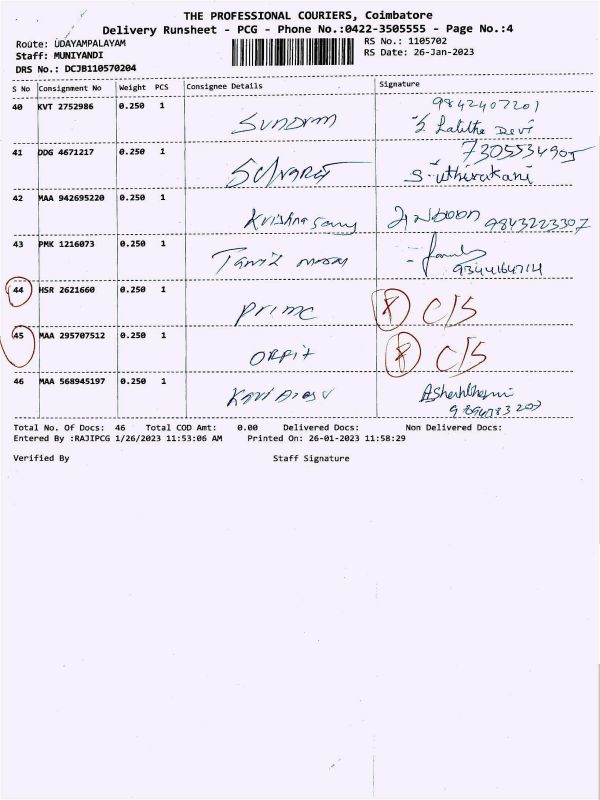 THE PROFESSIONAL COURIERS, Coimbatore
Delivery Runsheet - PCG - Phone No.:0422-3505555 - Page No.:4
Route: UDAYAMPALAYAM
RS No.: 1105702
Staff: MUNIYANDI
RS Date: 26-Jan-2023
DRS No.: DCJB110570204
S No Consignment No Weight PCS Consignee Details Signature
40 KVT 2752986 0.250 1 Sundrm 9842407201
Lalitha Devi
41 DDG 4671217 0.250 1 7305534905
S. uthirakani
42 MAA 942695220 0.250 1 Krishna Samy 9843223307
43 PMK 1216073 0.250 1 Tamil
9344164714
44 HSR 2621660 0.250 1 Prime 8 C/S
45 MAA 295707512 0.250 1 ORPit 8 C/S
46 MAA 568945197 0.250 1
Total No. Of Docs: 46 Total COD Amt: 0.00 Delivered Docs: Non Delivered Docs:
Entered By :RAJIPCG 1/26/2023 11:53:06 AM Printed On: 26-01-2023 11:58:29
Verified By Staff Signature